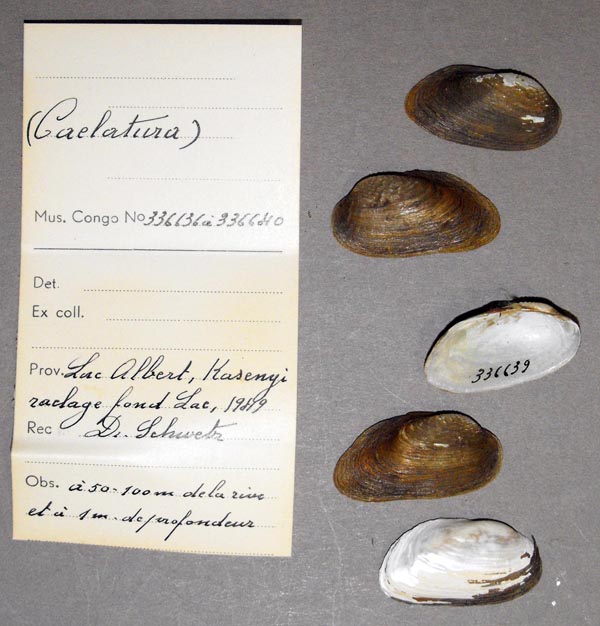 (Caelatura)
Mus. Congo No 336636 à 336640
Det.
Ex coll.
Prov. Lac Albert, Kasenyi
raclage fond Lac, 1949
Rec Dr. Schwetz
Obs. à 50-100m de la rive
et à 1m. de profondeur
336639